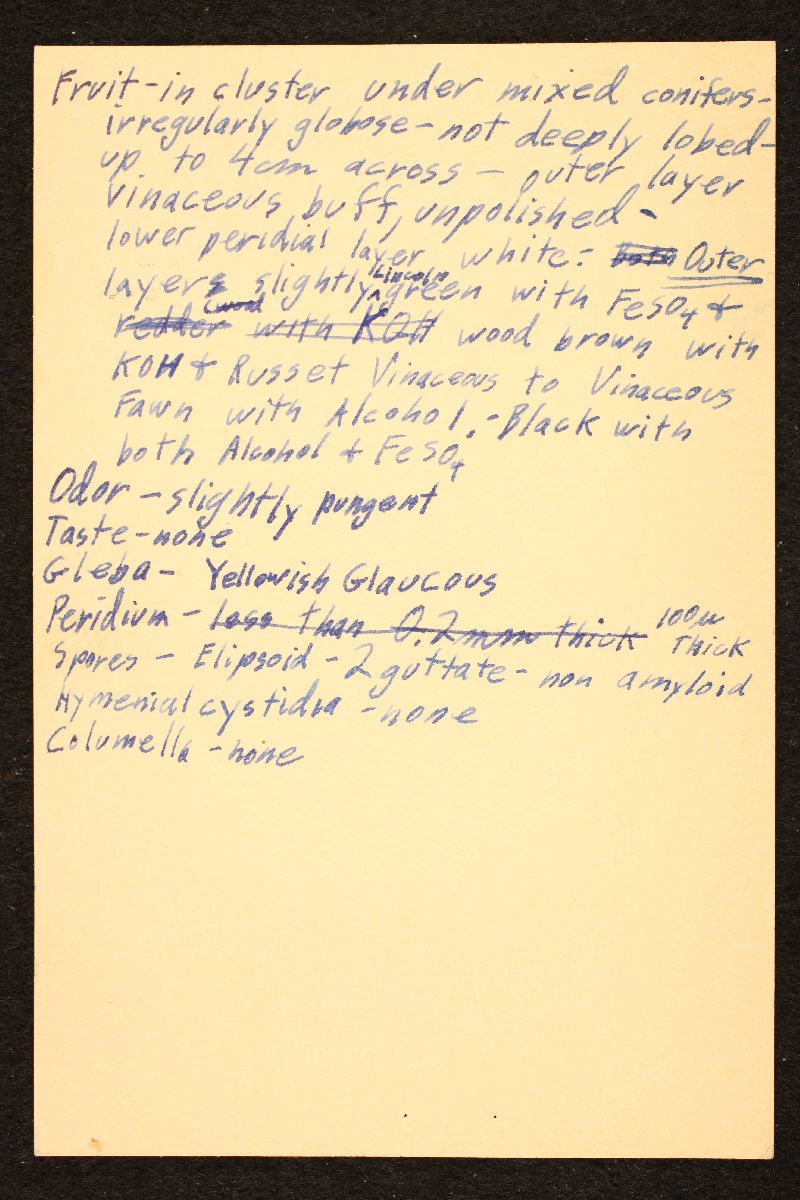 Fruit-in cluster under mixed conifers-
irregularly globose-not deeply lobed-
up to 4cm across - outer layer
Vinaceous buff, unpolished-
lower peridial layer white- both Outer
layers slightly Lincoln green with FeSO4 &
redder (wood with KOH wood brown with
KOH & Russet Vinaceous to Vinaceous
Fawn with Alcohol.-Black with
both Alcohol & FeSO4
Odor - slightly pungent
Taste-none
Gleba- Yellowish Glaucous
Peridium - less than 0.2mm thick 100µ Thick
Spores - Elipsoid - 2 guttate- non amyloid
Hymenial cystidia -none
Columella -none